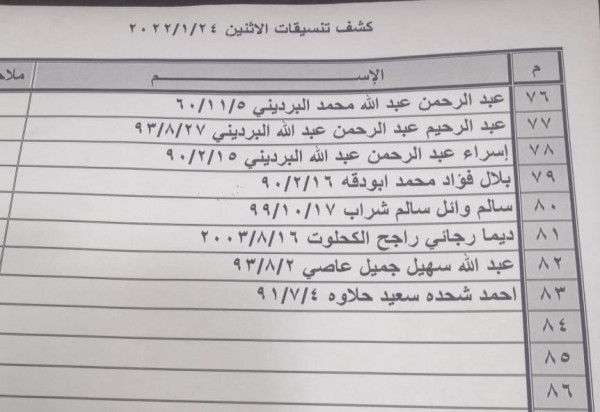 كشف تنسيقات الاثنين ٢٠٢٢/١/٢٤
م الإســـم ملاح
٧٦ عبد الرحمن عبد الله محمد البرديني ٦٠/١١/٥
٧٧ عبد الرحيم عبد الرحمن عبد الله البرديني ٩٣/٨/٢٧
٧٨ إسراء عبد الرحمن عبد الله البرديني ٩٠/٢/١٥
٧٩ بلال فؤاد محمد ابودقه ٩٠/٢/١٦
٨٠ سالم وائل سالم شراب ٩٩/١٠/١٧
٨١ ديما رجائي راجح الكحلوت ٢٠٠٣/٨/١٦
٨٢ عبد الله سهيل جميل عاصي ٩٣/٨/٢
٨٣ احمد شحده سعيد حلاوه ٩١/٧/٤
٨٤
٨٥
٨٦